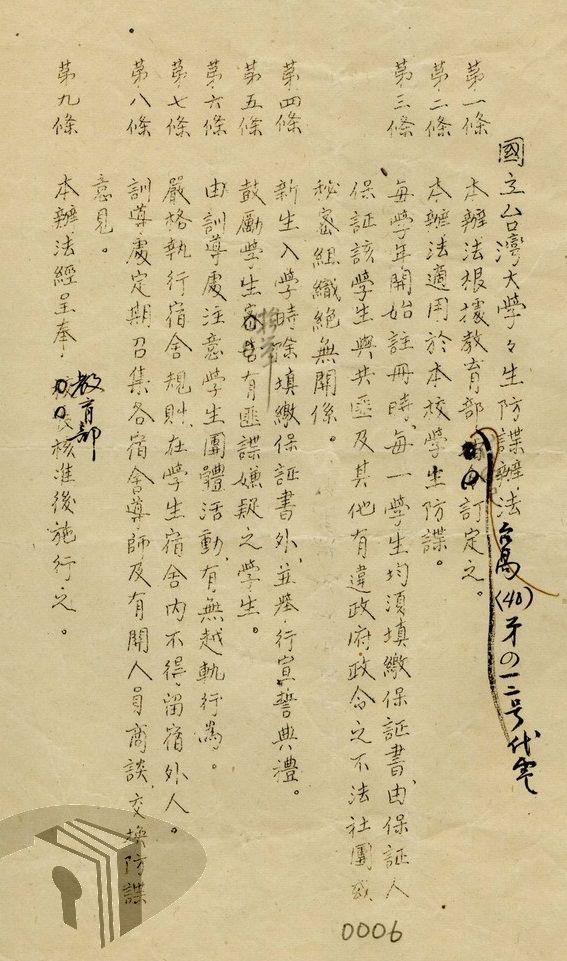 國立台灣大學々生防諜辦法
台高(40)才の一二号代電
第一條 本辦法根據教育部訂定之。
第二條 本辦法適用於本校學生防諜。
第三條 每學年開始註冊時，每一學生均須填繳保証書，由保証人
保証該學生與共匪及其他有違政府政令之不法社團或
秘密組織絕無關係。
第四條 新生入學時除填繳保証書外，並舉行宣誓典禮。
第五條 鼓勵學生檢舉有匪諜嫌疑之學生。
第六條 由訓導處注意學生團體活動，有無越軌行為。
第七條 嚴格執行宿舍規則，在學生宿舍內不得留宿外人。
第八條 訓導處定期召集各宿舍導師及有關人員商談，交換防諜
意見。
第九條 本辦法經呈奉教育部核准後施行之。
0006